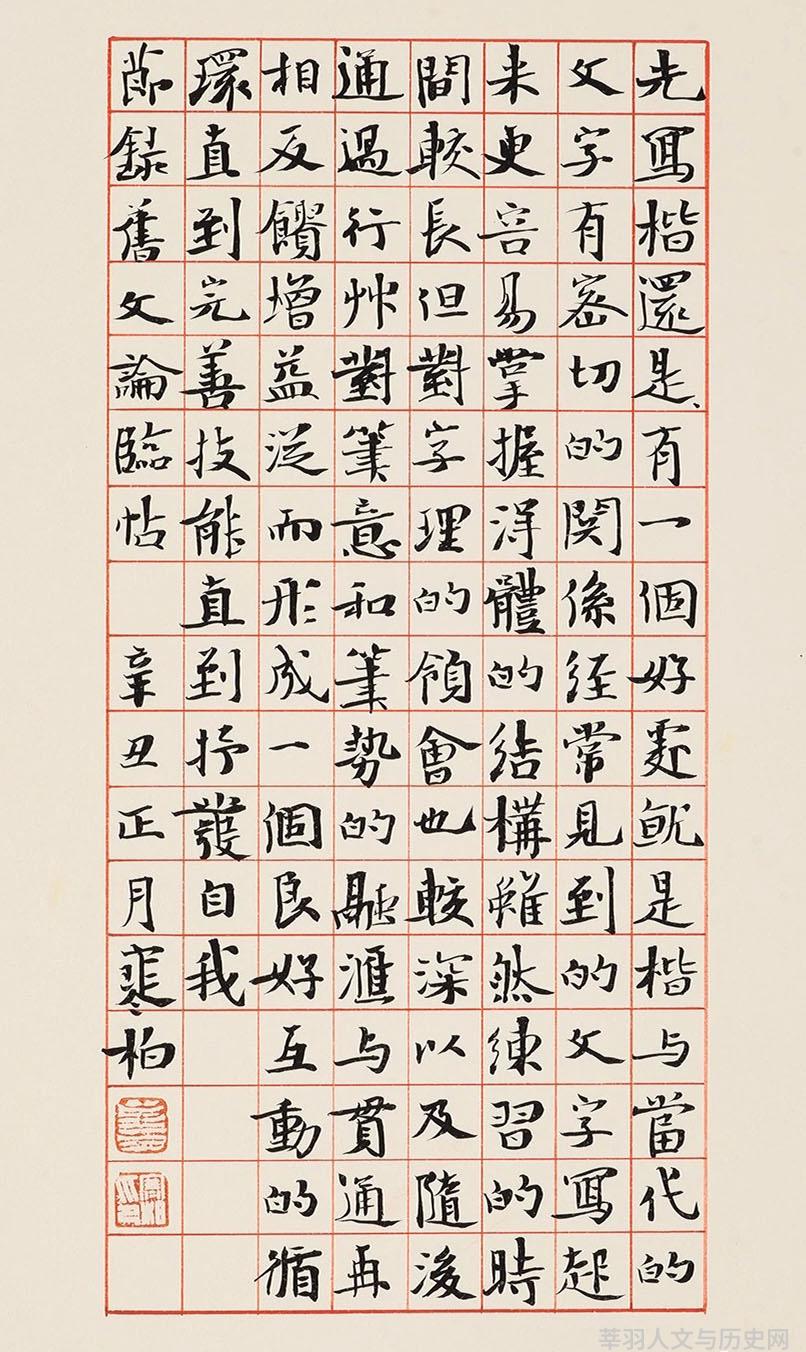 先寫楷還是、有一個好處就是楷与當代的
文字有密切的関係経常見到的文字寫起
来更容易掌握淂體的結構雖然練習的時
間較長但對字理的領會也較深以及隨後
通過行艸對筆意和筆勢的融滙与貫通再
相反饋增益從而形成一個良好互動的循
環直到完善技能直到抒發自我
節録舊文論臨帖 辛丑正月寒柏
莘羽人文与历史网